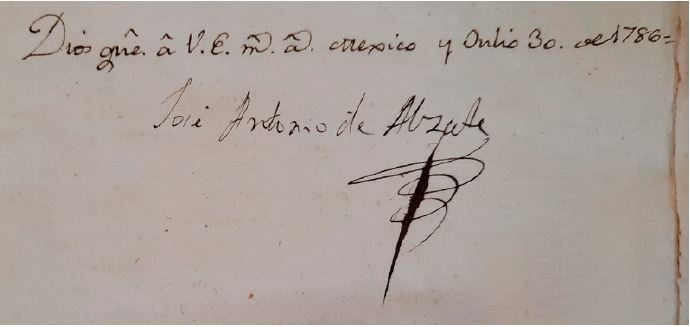 Dios gũe. â V. E. m̃. ã. Mexico y Julio 30. de 1786=
José Antonio de Alzate